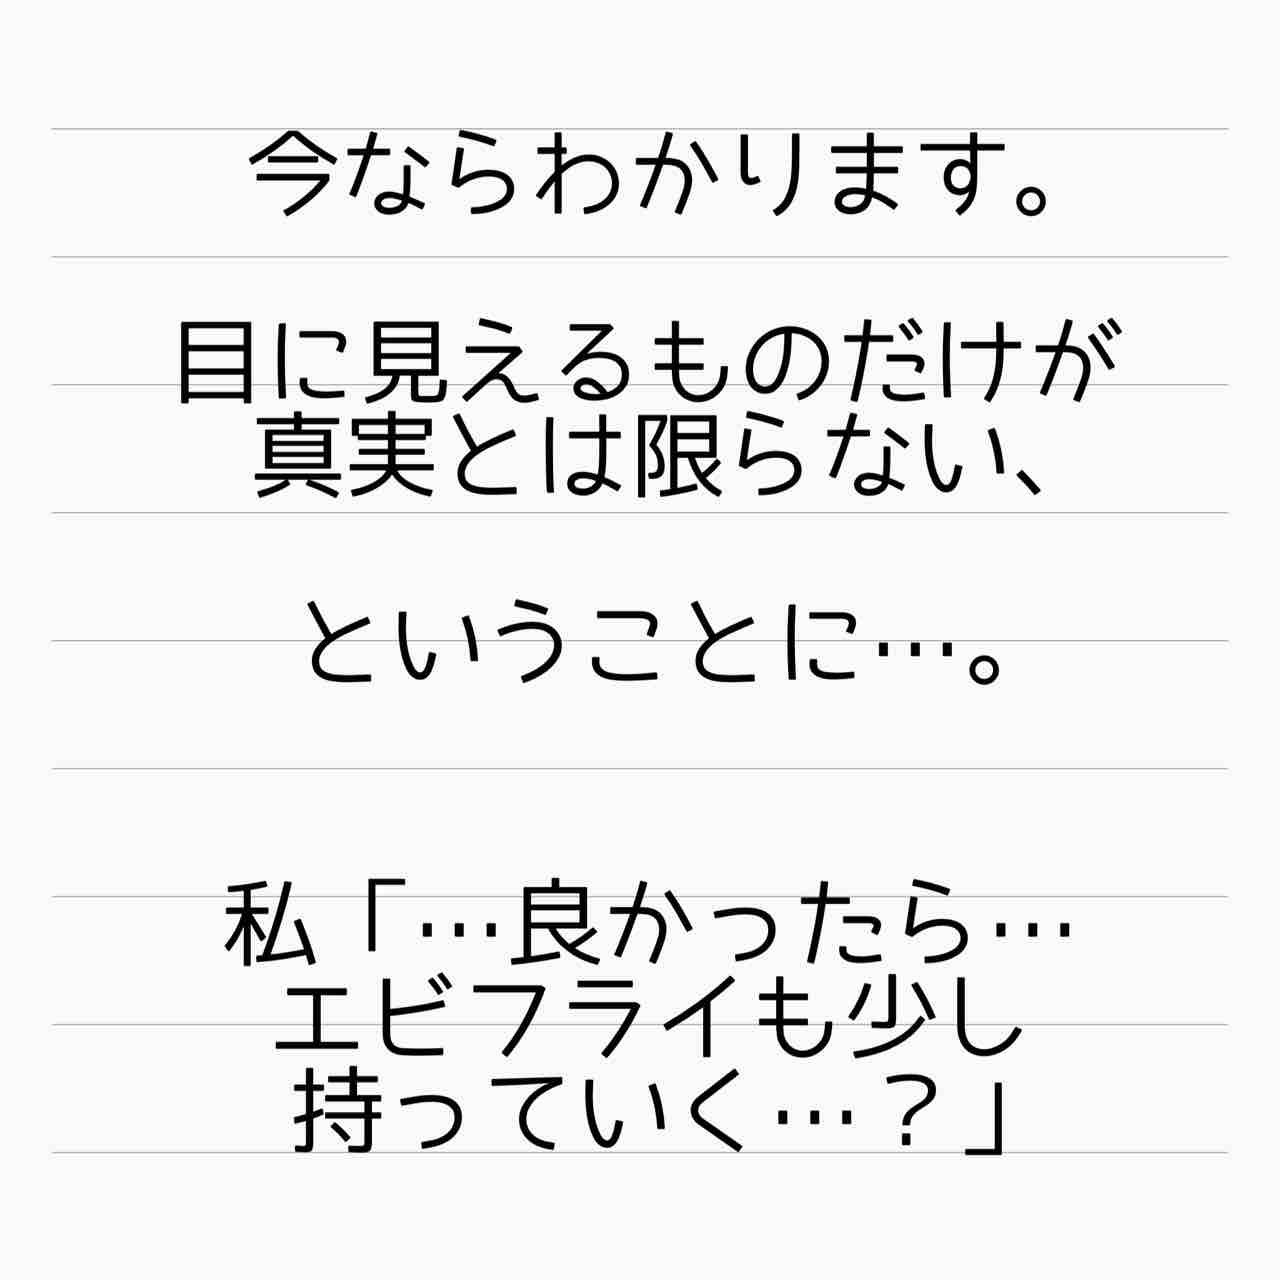 今ならわかります。
目に見えるものだけが
真実とは限らない、
ということに…。
私「…良かったら…
エビフライも少し
持っていく…？」